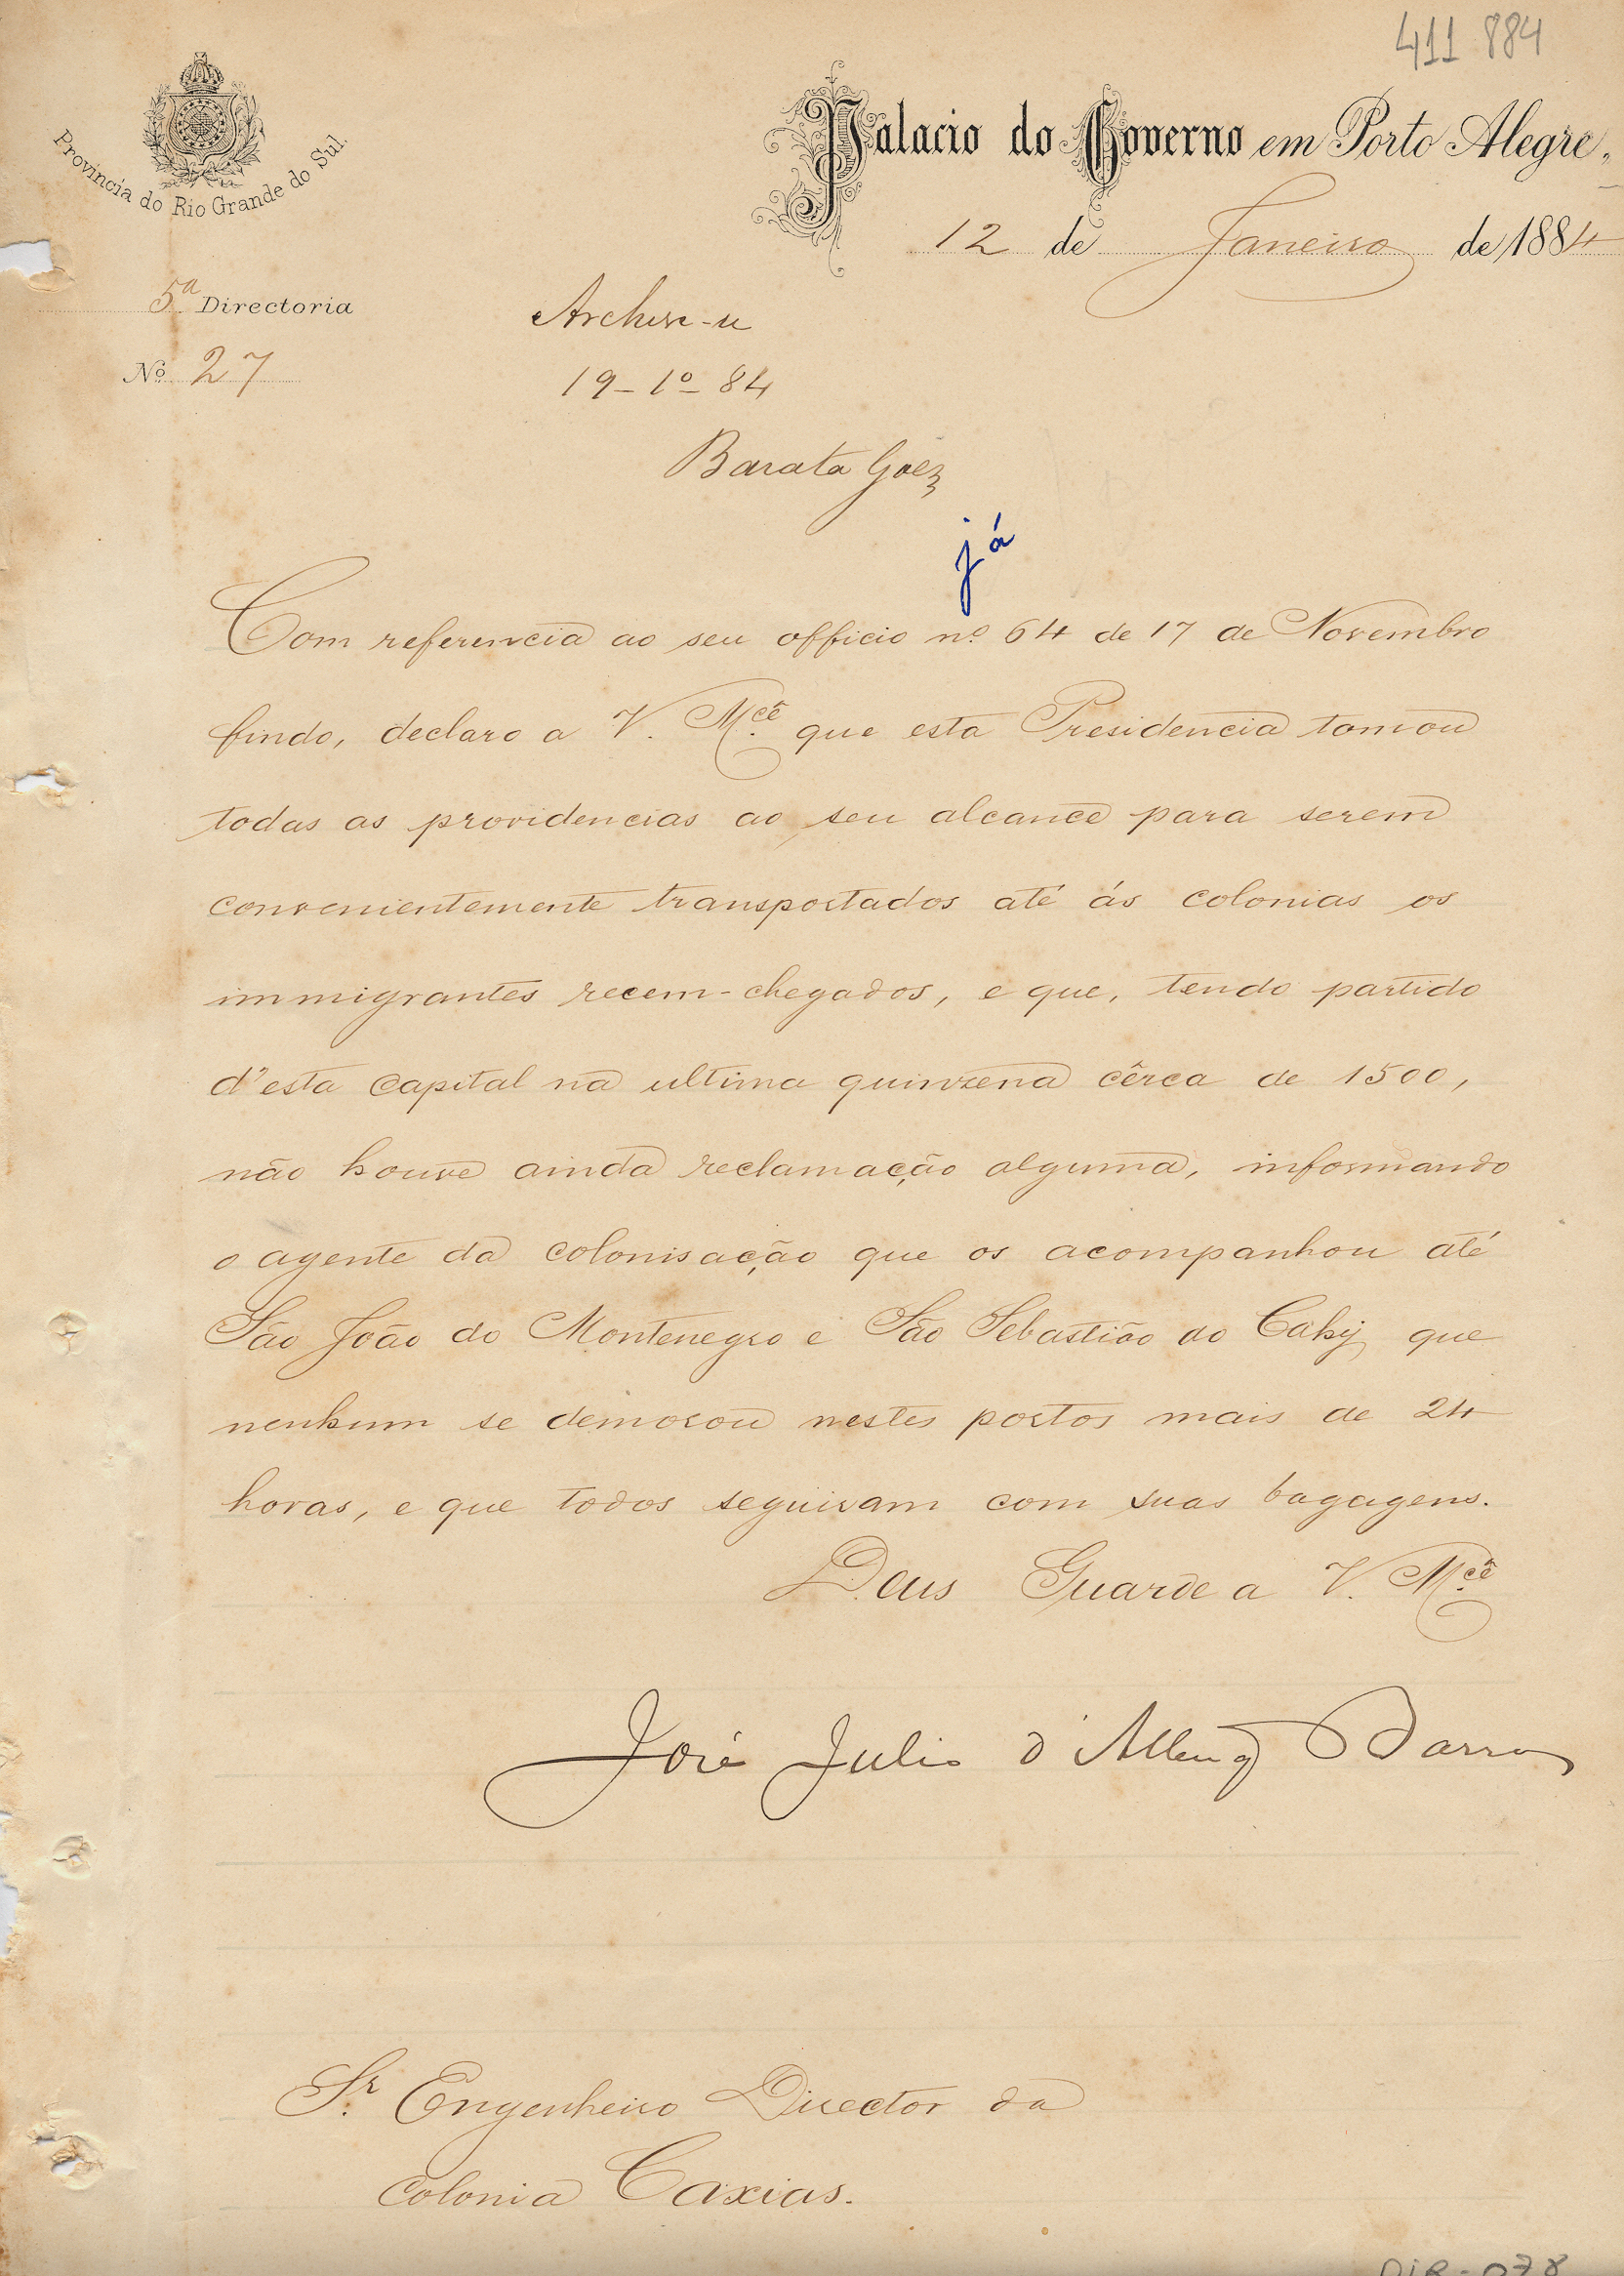 411 884
Provincia do Rio Grande do Sul.
Palacio do Governo em Porto Alegre,
12 de Janeiro de 1884
5ª Directoria
Nº 27
Archive-se
19-1º-84
Barata Góez
já
Com referencia ao seu officio nº 64 de 17 de Novembro
findo, declaro a V. Mcê que esta Presidencia tomou
todas as providencias ao seu alcance para serem
convenientemente transportados até ás colonias os
immigrantes recem-chegados, e que, tendo partido
d'esta Capital na ultima quinzena cêrca de 1500,
não houve ainda reclamação alguma, informando
o agente da colonisação que os acompanhou até
São João do Montenegro e São Sebastião do Cahy, que
nenhum se demorou nestes portos mais de 24
horas, e que todos seguiram com suas bagagens.
Deus Guarde a V. Mcê
José Julio d'Albuqᵉ Barros
Sr. Engenheiro Director da
Colonia Caxias.
DIR-078